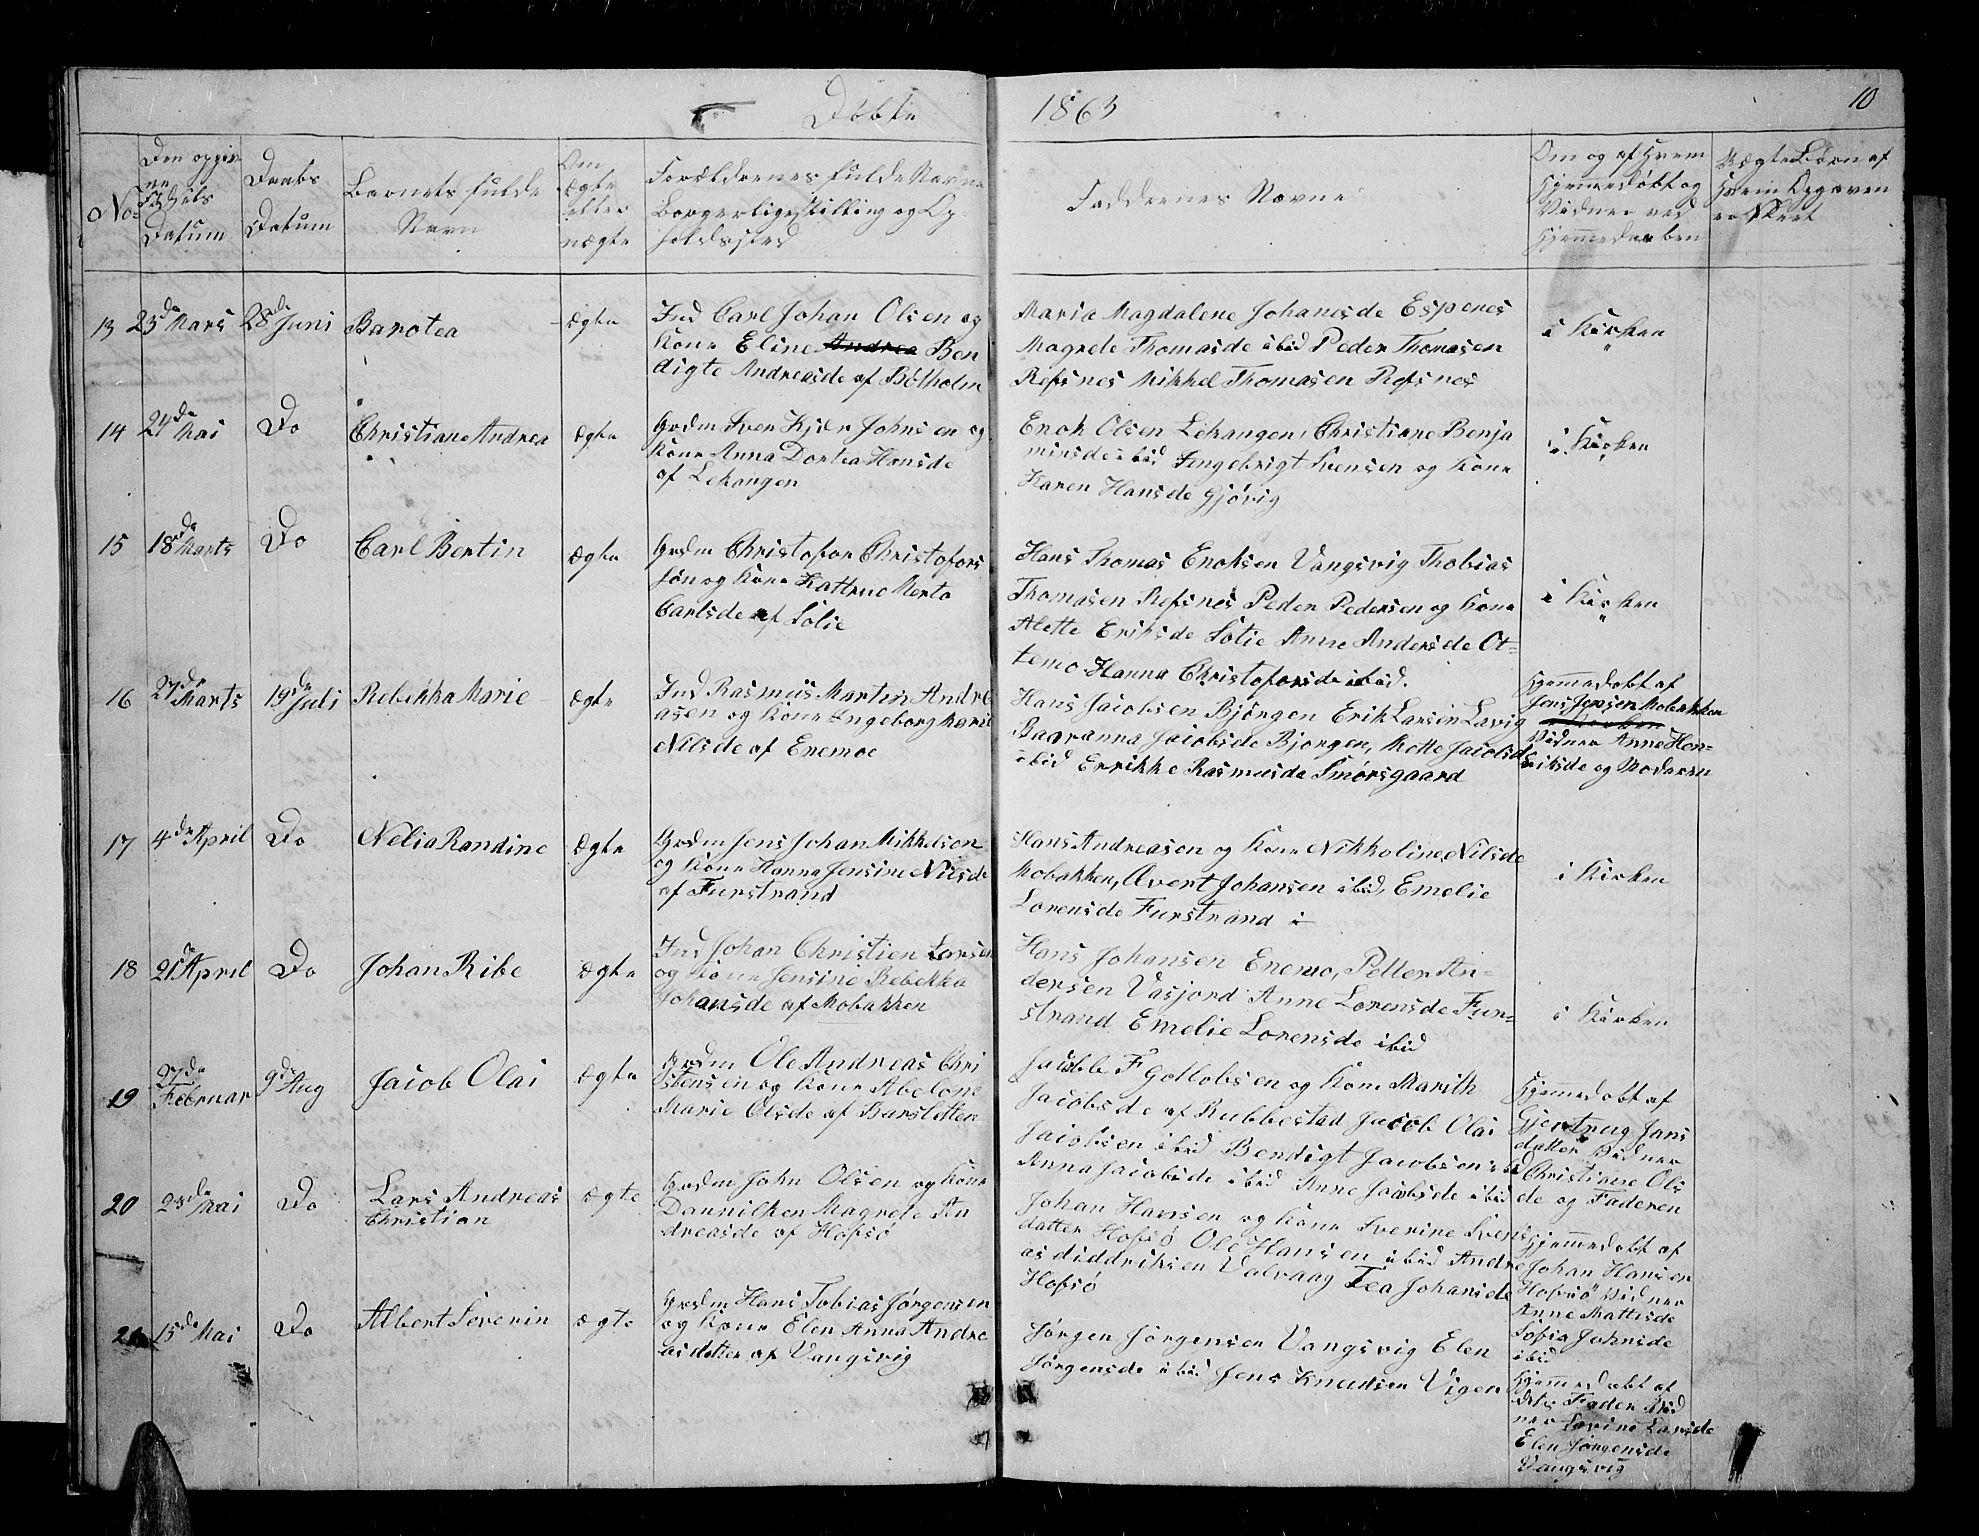 Døbte 1863 10
No
Den opgivne Fødsels Datum
Daabs Datum
Barnets fulde Navn
Om ægte eller uægte
Forældrenes fulde Navne
Borgerlige Stilling og Op-
holdssted
Faddrenes Navne
Om og af Hvem
Hjemmedøbt og
Vidner ved
Hjemmedaaben
Uægte Børn af
Hvem Opgaven
er skeet
13 23de Mars 28de Juni Barotea ægte
Ind Carl Johan Olsen og
Kone Eline Andrea Ben
digte Andreasde af Bølholm
Maria Magdalene Johanesde Espenes
Magrete Thomasde ibid Peder Thomasen
Refsnes Mikkel Thomasen Refsnes
i Kirken
14 24de Mai Do Christiane Andrea ægte
Grdm Sven Kjær Johnsen og
Kone Anna Dortea Hansde
af Lekangen
Enok Olsen Lekangen, Christiane Benja
minsde ibid Ingebrigt Svensen og Kone
Karen Hansde Gjövig
i Kirken
15 18de Marts Do Carl Bertin ægte
Grdm Christofor Christofors
søn og Kone Kattrine Merto
Carlsde af Solie
Hans Thomas Enoksen Vangsvig Thobias
Thomasen Refsnes Peder Pedersen og Kone
Alette Eriksde Solie Anne Andersde Ot=
temo Hanna Christoforsde ibid.
i Kirken
16 27de Marts 19de Juli Rebekka Marie ægte
Ind Rasmus Martin Andre
asen og Kone Ingeborg Marie
Nilsde af Enemoe
Hans Jacobsen Bjôrgen Erik Larsen Lavig
Jacobsde Bjorgen, Mette Jacobsde
ibid Errikke Rasmusde Smørsgaard
Hjemmedøbt af
Jens Jensen Mobakken
Vidner Anne Hen=
riksde og Moderen
17 4de April Do Nelia Randine ægte
Grdm Jens Johan Mikkelsen
og Kone Hanna Jensine Nilsde
af Furstrand
Hans Andreasen og Kone Nikkoline Nilsde
Mobakken, Avert Johansen ibid, Emelie
Lorensde Furstrand i
i Kirken
18 21de April Do Johan Ribe ægte
Ind Johan Christien Larsen
og Kone Jensine Rebekka
Johansde af Mobakken
Hans Johansen Enemo, Petter An=
dersen Vasjord Anne Lorensde Fur=
strand Emelie Lorensde ibid
i Kirken
19 27de Februar 9de Aug Jacob Olai ægte
Grdm Ole Andreas Chri
stensen og Kone Abelone
Marie Olsde af Barsletten
Jacob F Gotlobsen og Kone Marith
Jacobsde af Rubbestad Jacob Olai
Jacobsen ibid Bendigt Jacobsen ibid
Anna Jacobsde ibid Anne Jacobsde ibid
Hjemedøbt af
Gjertrug Jans
datter Vidner
Christiane Ols
de og Faderen
20 23de Mai Do Lars Andreas
Christian ægte
Grdm John Olsen og Kone
Dannilken Magrete An
dreasde af Hofsø
Johan Hansen og Kone Sverine Svens
datter Hofsø Ole Hansen ibid Andre
as diddriksen Valvaag Tea Johansde
Hofsø
Hjemmedøbt af
Johan Hansen
Hofsø Vidner
Anne Mattisde
Sofia Johnsde
ibid
21 15de Mai Do Albert Severin ægte
Grdm Hans Tobias Jørgensen
og Kone Elen Anna Andre
asdatter af Vangsvig
Jørgen Jørgensen Vangsvig Elen
Jørgensde ibid Jens Knudsen Vigen
Hjemmedøbt af
dets Fader Vid
ner Sorine Larsde
Elen Jørgensde
Vangsvig